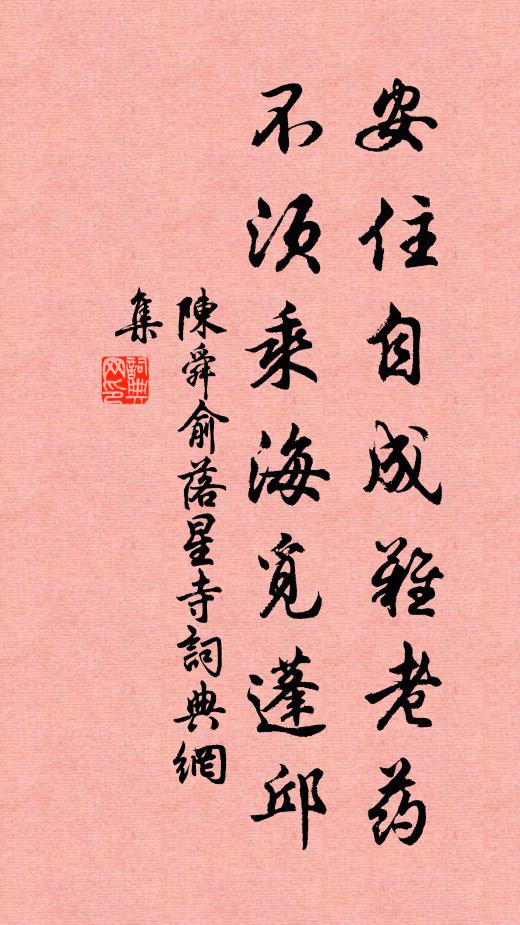 安住自成难老药
不须乘海觅蓬邱
陳舜俞落星寺詞典網
集
詞典网印